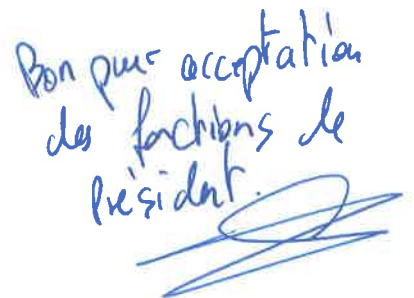 Bon pour acceptation
des fonctions de
Président.